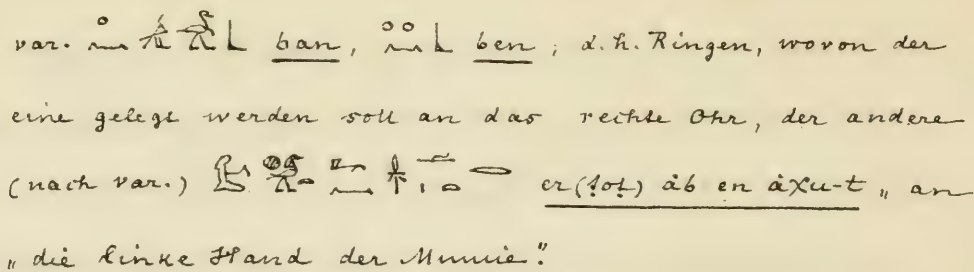 var. ban, ben, d.h. Ringen, wovon der
eine gelegt werden soll an das rechte Ohr, der andere
(nach var.) er(ṭoṭ) áb en áχu-t „ an
„ die linke Hand der Mumie.“